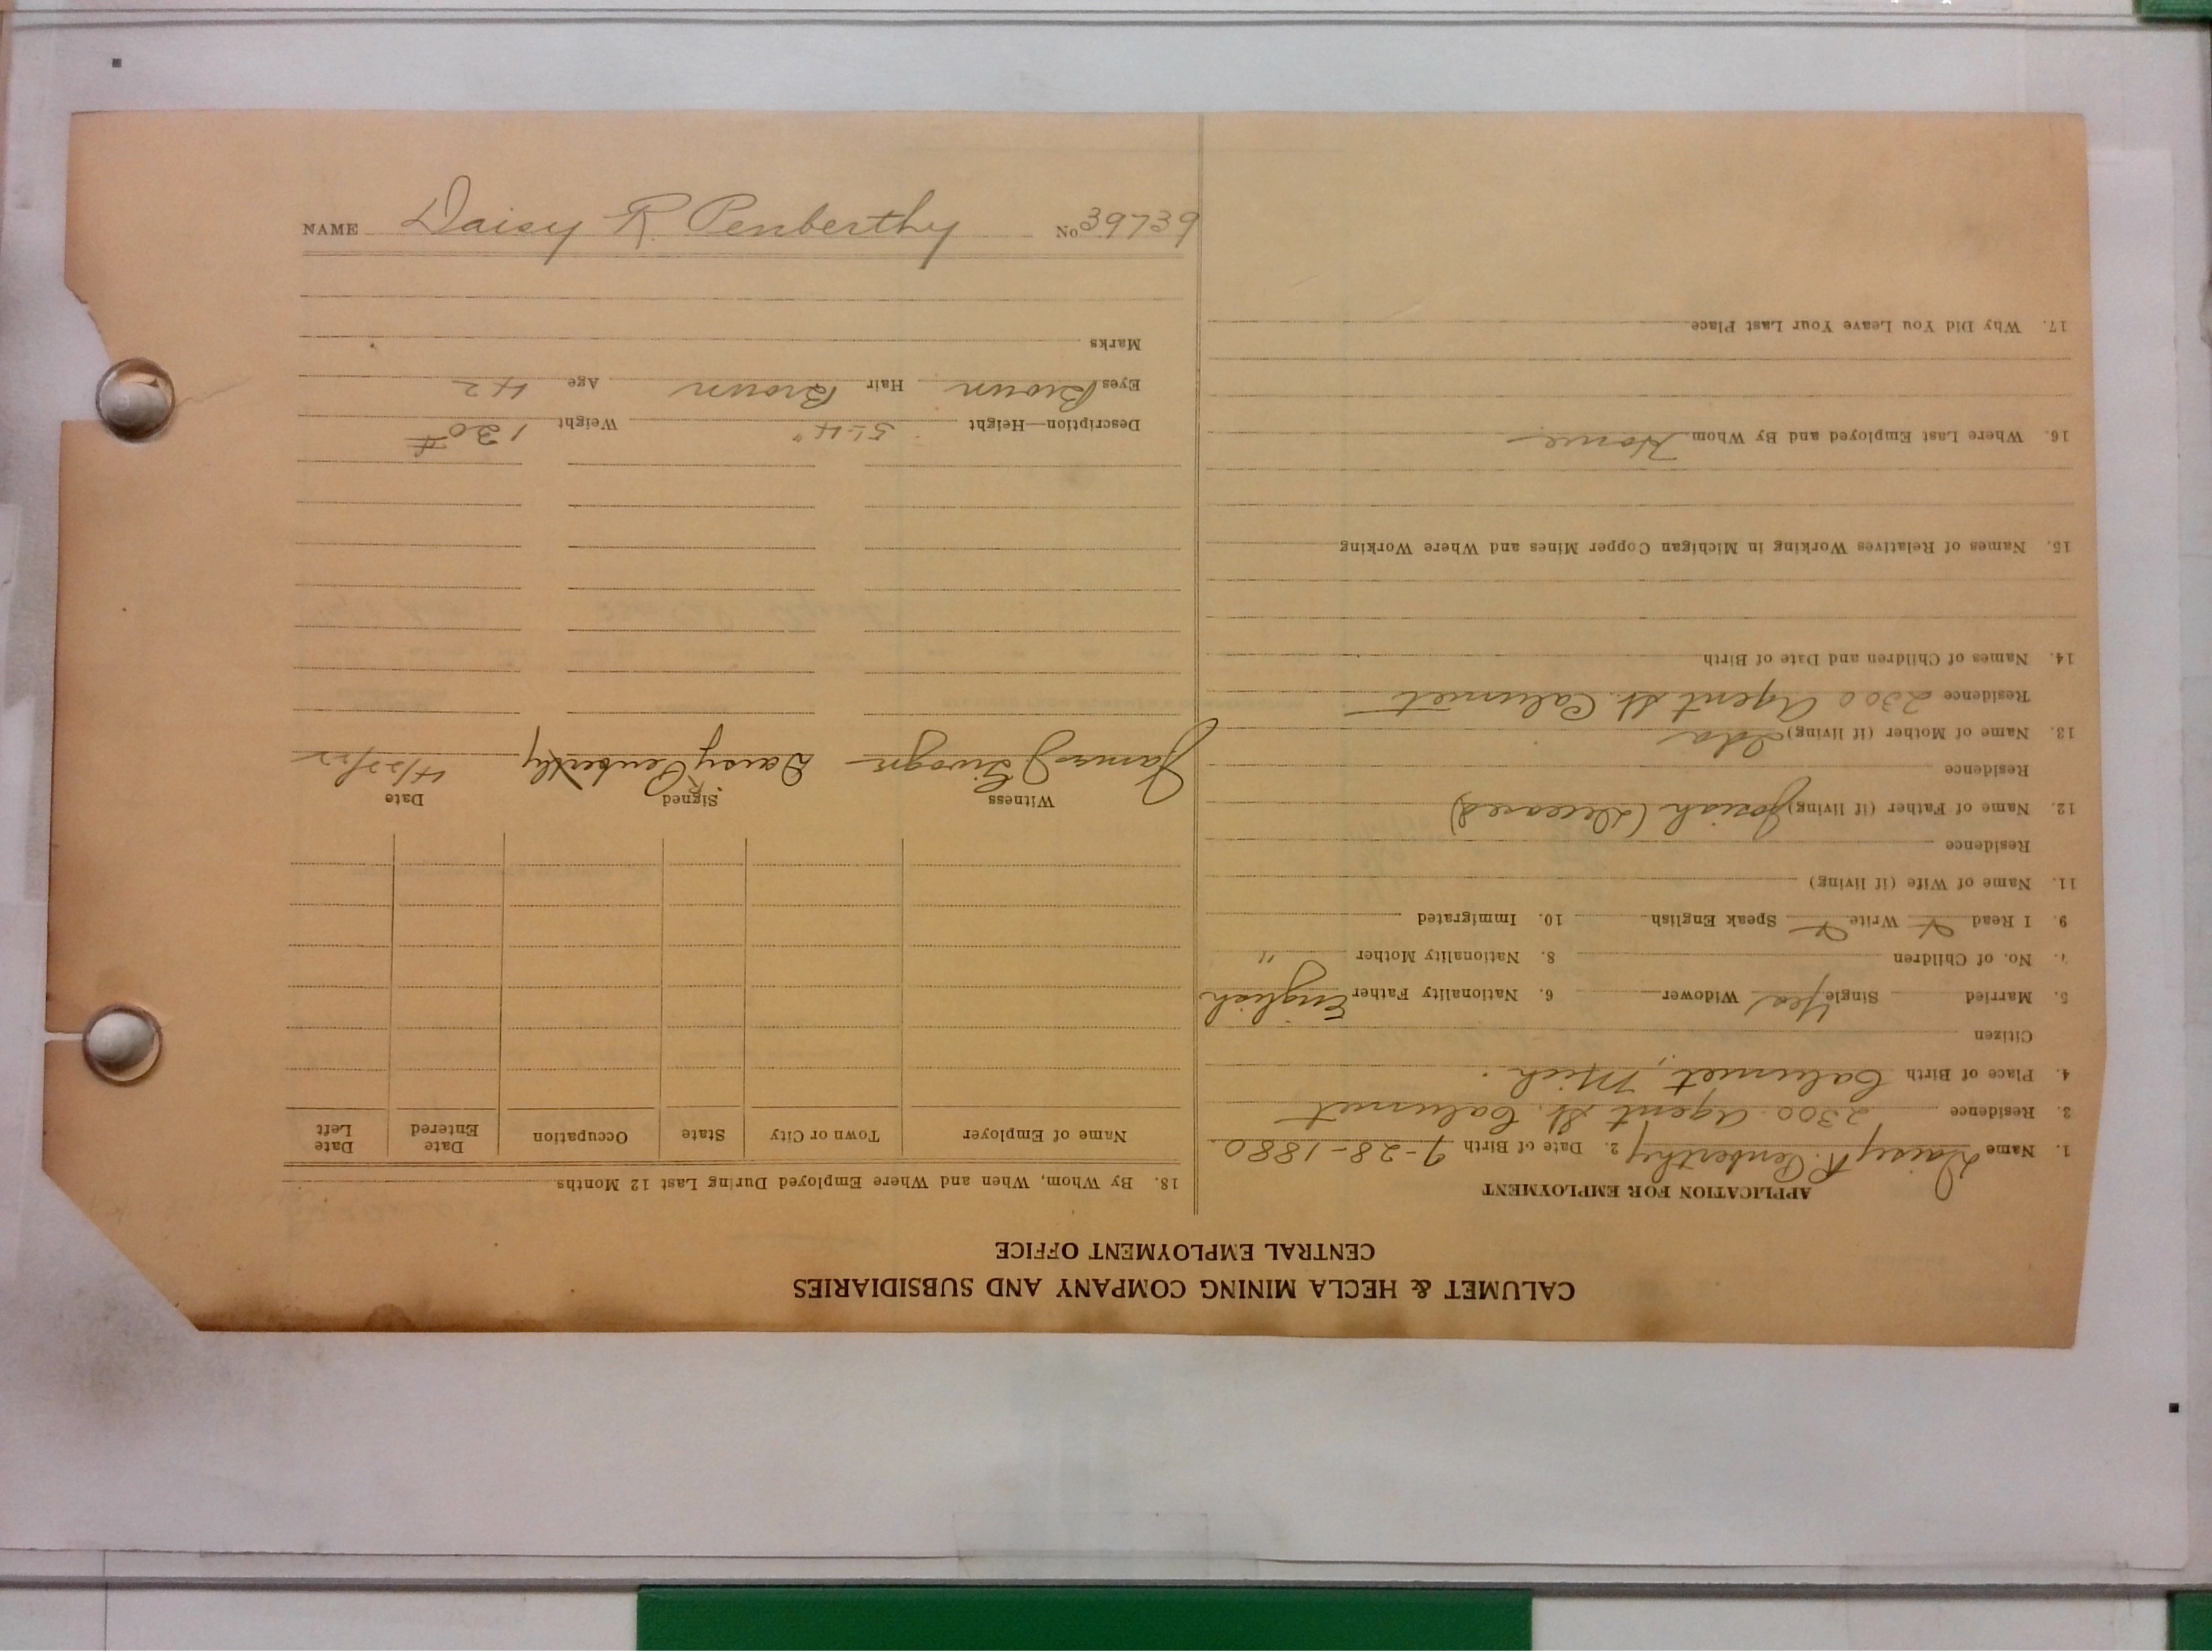 NAME Daisy R. Penberthy No 39739
CALUMET & HECLA MINING COMPANY AND SUBSIDIARIES
CENTRAL EMPLOYMENT OFFICE
APPLICATION FOR EMPLOYMENT
1. Name Daisy R. Penberthy 2. Date of Birth 9-28-1880.
3. Residence 2300 Agent St. Calumet
4. Place of Birth Calumet, Mich.
Citizen
5. Married Single Yes Widower 6. Nationality Father English
7. No. of Children 8. Nationality Mother "
9. I Read Write Speak English 10. Immigrated
11. Name of Wife (if living)
Residence
12. Name of Father (if living) Josiah (Deceased)
Residence
13. Name of Mother (if living) Ida
Residence 2300 Agent St. Calumet
14. Names of Children and Date of Birth
15. Names of Relatives Working in Michigan Copper Mines and Where Working
16. Where Last Employed and By Whom Home
17. Why Did You Leave Your Last Place
18. By Whom, When and Where Employed During Last 12 Months
Name of Employer Town or City State Occupation Date Entered Date Left
Witness Signed Date
James J. Daisy R Penberthy
Description—Height 5'-4" Weight 130 #
Eyes Brown Hair Brown Age 42
Marks